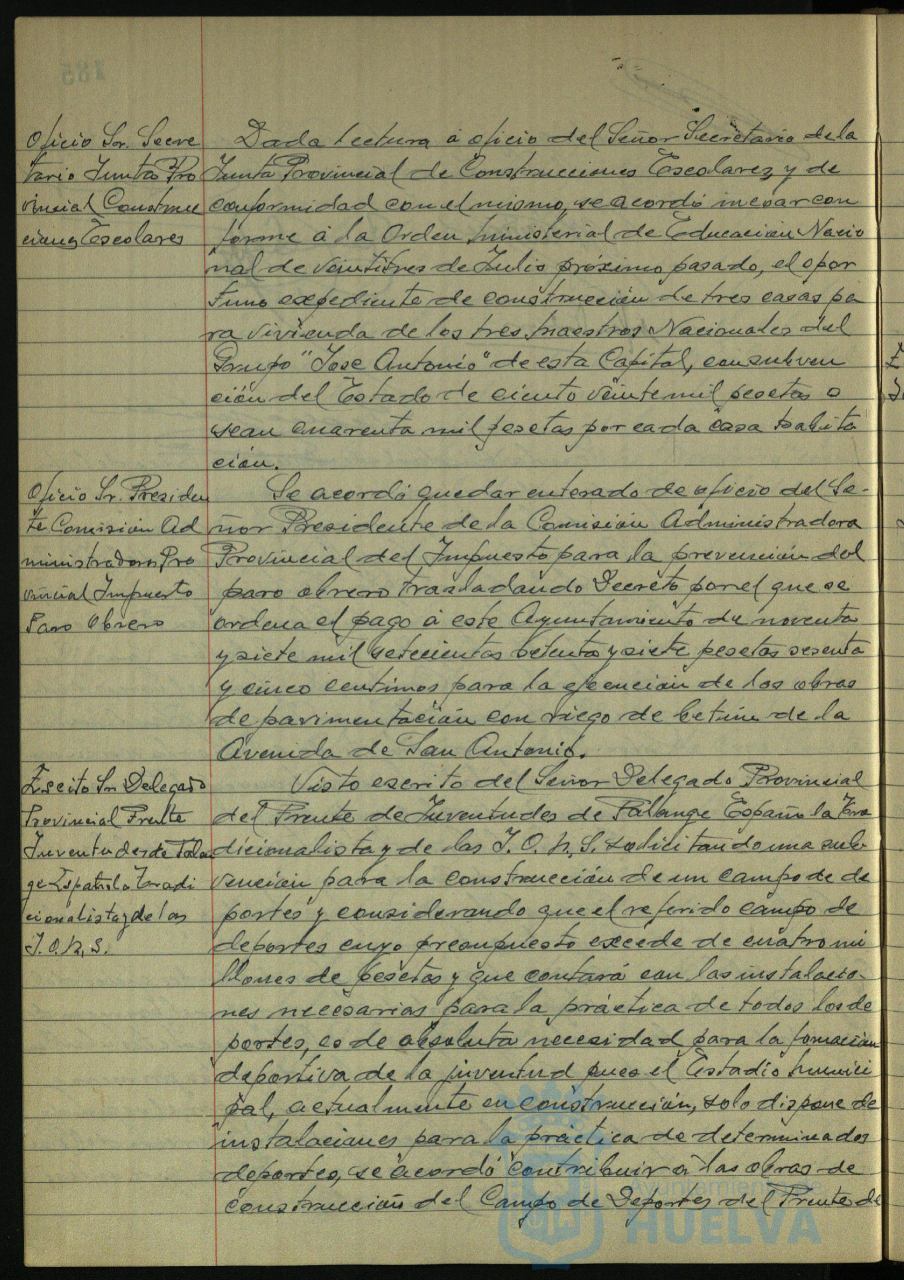 Oficio Sr. Secre
tario Junta Pro
vincial Construc
ciones Escolares
Dada lectura á oficio del Señor Secretario de la
Junta Provincial de Construcciones Escolares, y de
conformidad con el mismo, se acordó incoar con
forme á la Orden ministerial de Educación Nacio
nal de veintitres de Julio próximo pasado, el opor
tuno expediente de construcción de tres casas pa
ra vivienda de los tres maestros Nacionales del
Grupo "Jose Antonio" de esta Capital, con subven
ción del Estado de ciento veinte mil pesetas o
sean cuarenta mil pesetas por cada casa habita
ción.
Oficio Sr. Presiden
te Comisión Ad
ministradora Pro
vincial Impuesto
Paro Obrero
Se acordó quedar enterado de oficio del Se-
ñor Presidente de la Comisión Administradora
Provincial del Impuesto para la prevención del
paro obrero trasladando Decreto por el que se
ordena el pago á este Ayuntamiento de noventa
y siete mil setecientas setenta y siete pesetas sesenta
y cinco centimos para la ejecución de las obras
de pavimentación con riego de betún de la
Avenida de San Antonio.
Escito Sr. Delegado
Provincial Frente
Juventudes de Falan
ge Española Tradi
cionalista y de las
J.O.N.S.
Visto escrito del Señor Delegado Provincial
del Frente de Juventudes de Falange Española Tra
dicionalista y de las J.O.N.S. solicitando una sub
vención para la construcción de un campo de de
portes y considerando que el referido campo de
deportes cuyo presupuesto excede de cuatro mi
llones de pesetas y que contará con las instalacio-
nes necesarias para la práctica de todos los de
portes, es de absoluta necesidad para la formación
deportiva de la juventud pues el Estadio Munici
pal, actualmente en construcción, solo dispone de
instalaciones para la práctica de determinados
deportes, se acordó contribuir á las obras de
construcción del Campo de Deportes del Frente de
Ayuntamiento de
HUELVA